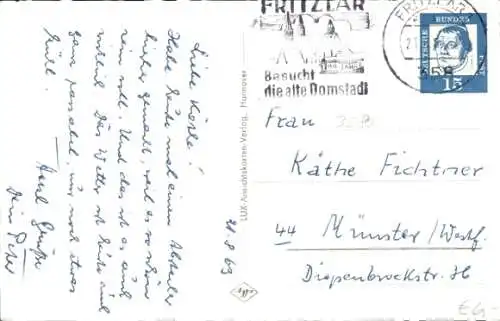 Liebe Käthe!
Habe heute mal einen Abstecher
hierher gemacht, weil es so schön
sein soll. Und das ist es auch
wirklich. Das Wetter ist heute auch
ganz passabel, nur noch etwas
kühl.
Herzl. Grüße
Dein Peter
21.8.63
LUX-Ansichtskarten-Verlag, Hannover
FRITZLAR
Besucht
die alte Domstadt
FRITZLAR
358
DEUTSCHE BUNDESPOST
15
Frau
Käthe Fichtner
44 Münster/Westf.
Diepenbrockstr. 36